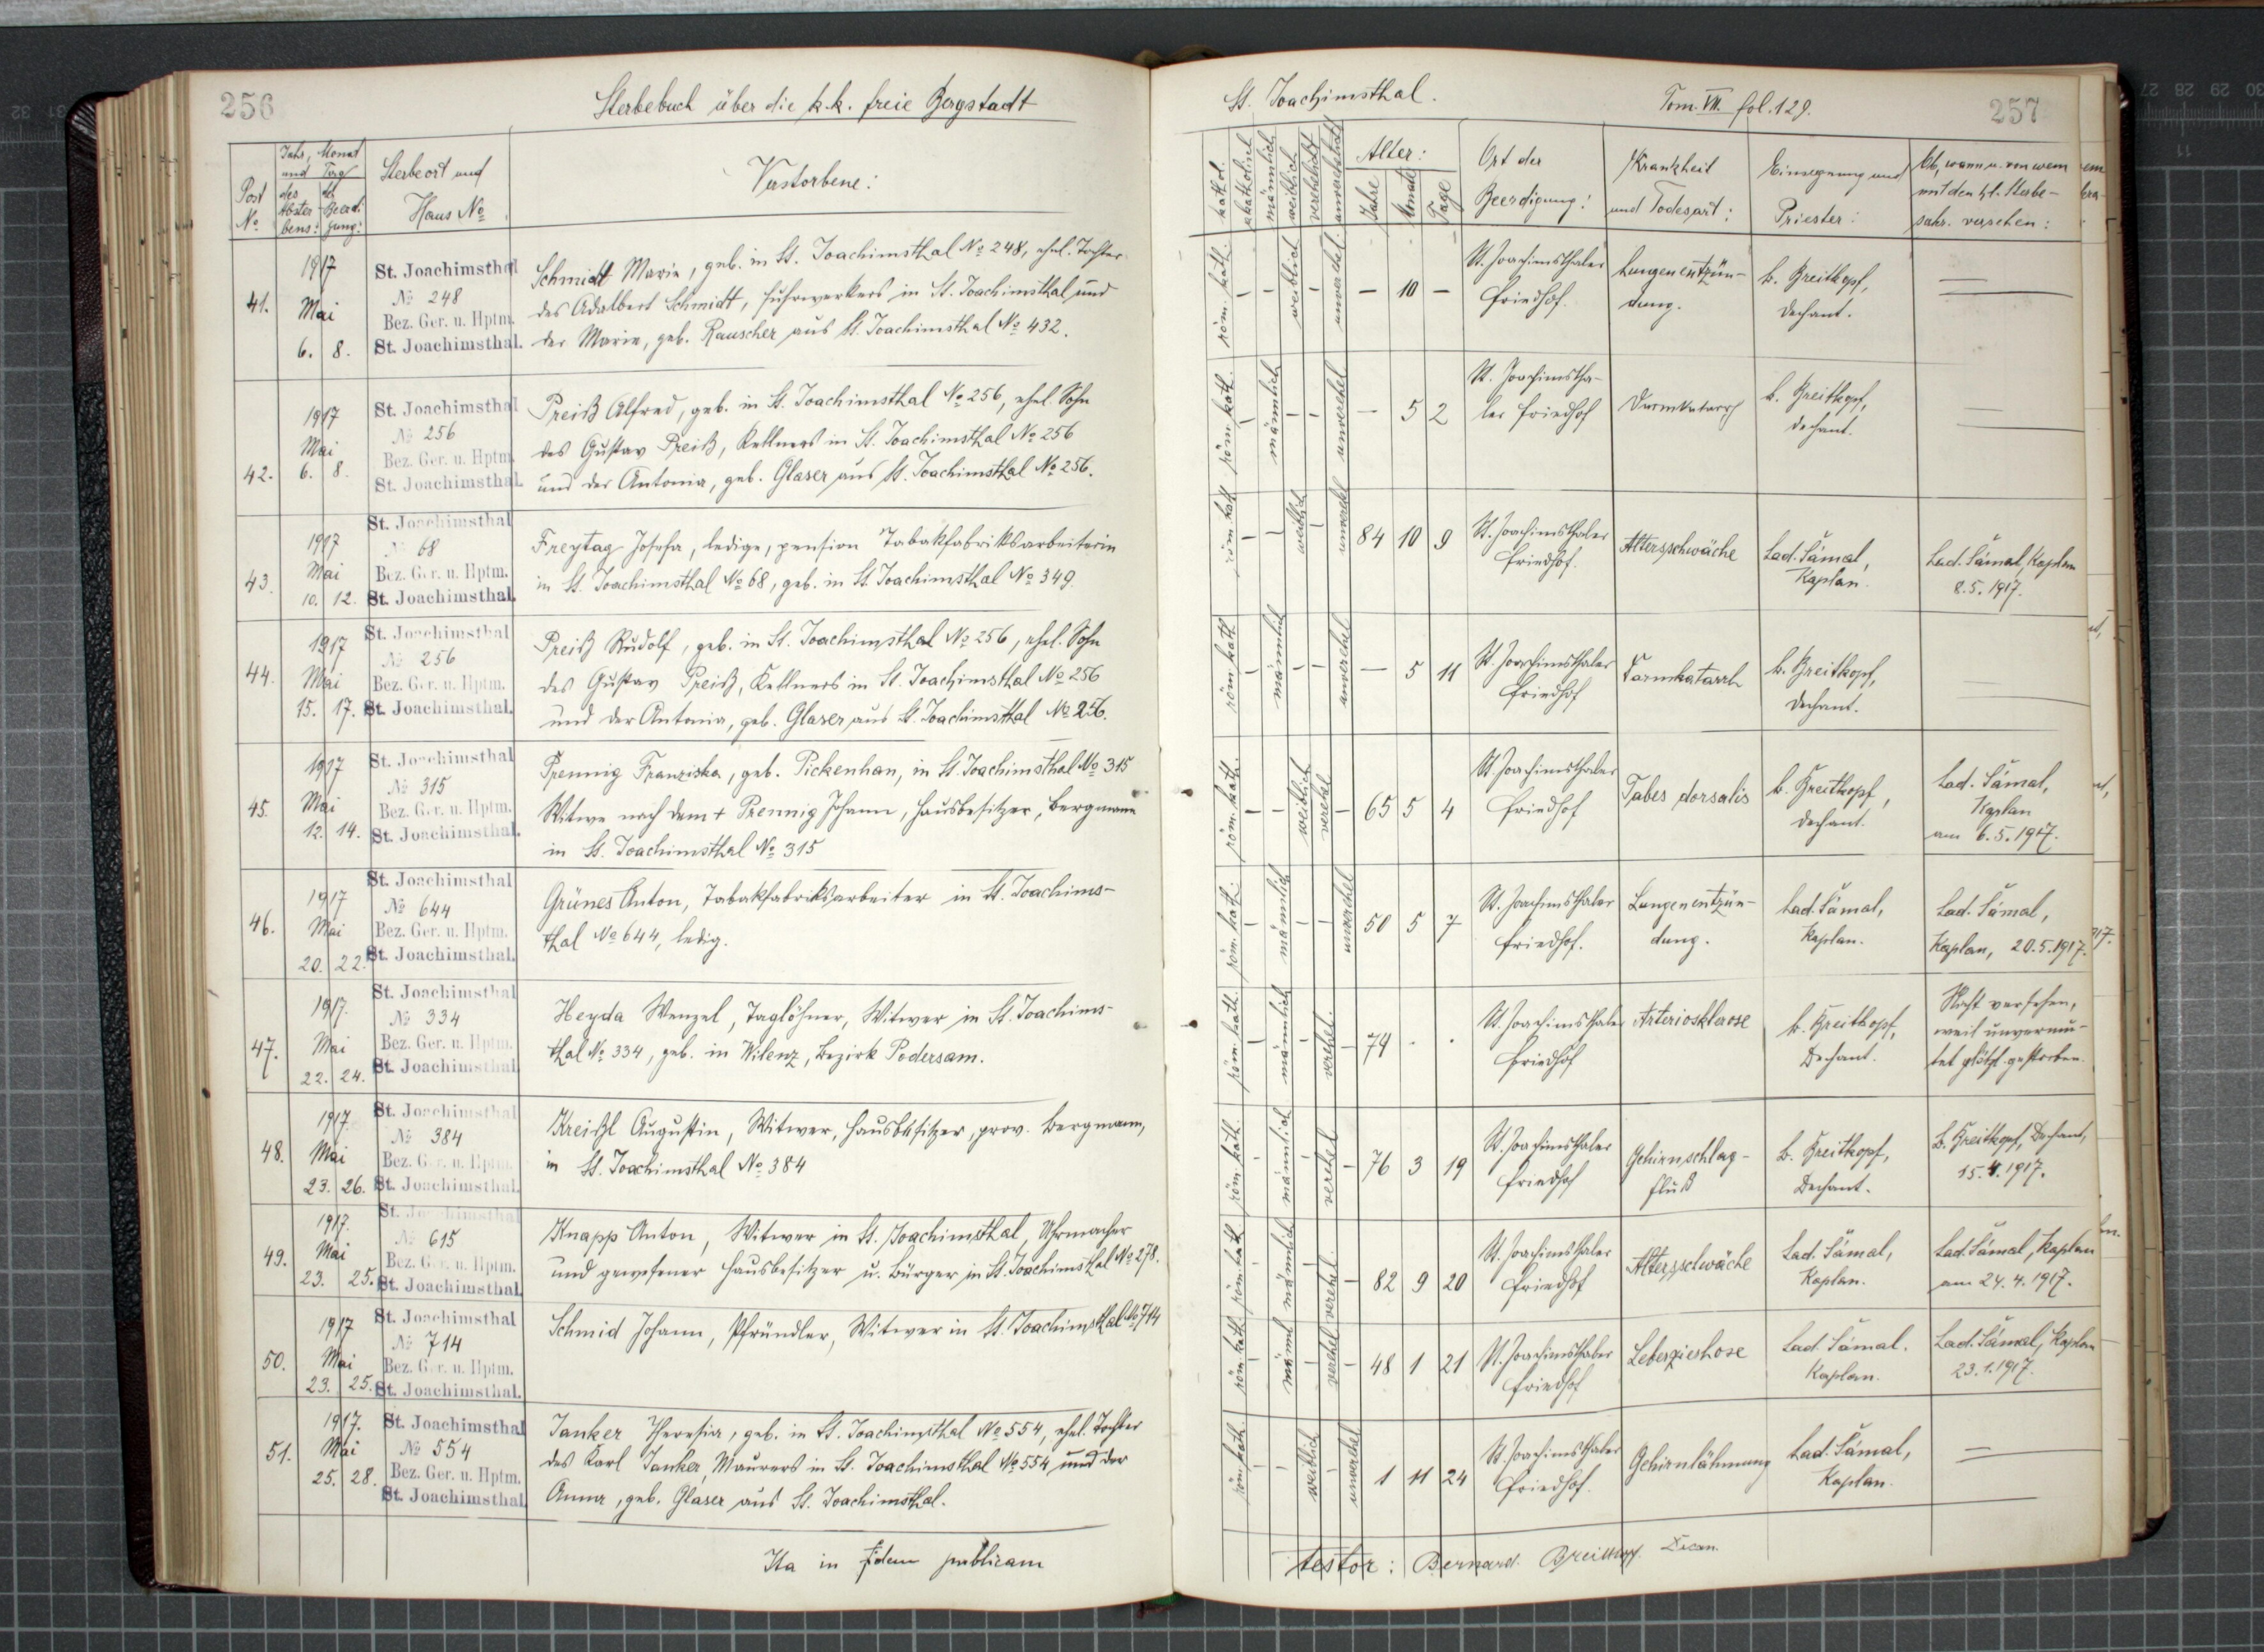 256
Sterbebuch über die k.k. freie Bergstadt
Post
No
Jahr, Monat
und Tag
des
Abster
bens:
der
Beerdi
gung:
Sterbeort und
Haus No
Verstorbene:
41.
1917
Mai
6. 8.
St. Joachimsthal
No 248
Bez. Ger. u. Hptm.
St. Joachimsthal.
Schmidt Marie, geb. in St. Joachimsthal No 248, ehel. Tochter
des Adalbert Schmidt, Fuhrwerkers in St. Joachimsthal und
der Marie, geb. Rauscher aus St. Joachimsthal No 432.
42.
1917
Mai
6. 8.
St. Joachimsthal
No 256
Bez. Ger. u. Hptm.
St. Joachimsthal.
Preiß Alfred, geb. in St. Joachimsthal No 256, ehel. Sohn
des Gustav Preiß, Kellners in St. Joachimsthal No 256
und der Antonia, geb. Glaser aus St. Joachimsthal No 256.
43.
1917
Mai
10. 12.
St. Joachimsthal
No 68
Bez. Ger. u. Hptm.
St. Joachimsthal.
Freytag Josefa, ledige, pension Tabakfabriksarbeiterin
in St. Joachimsthal No 68, geb. in St. Joachimsthal No 349
44.
1917
Mai
15. 17.
St. Joachimsthal
No 256
Bez. Ger. u. Hptm.
St. Joachimsthal.
Preiß Rudolf, geb. in St. Joachimsthal No 256, ehel. Sohn
des Gustav Preiß, Kellners in St. Joachimsthal No 256
und der Antonia, geb. Glaser aus St. Joachimsthal No 256.
45.
1917
Mai
12. 14.
St. Joachimsthal
No 315
Bez. Ger. u. Hptm.
St. Joachimsthal.
Prennig Franziska, geb. Pickenhan, in St. Joachimsthal No 315
Witwe nach dem + Prennig Johann, Hausbesitzer, Bergmann
in St. Joachimsthal No 315
46.
1917
Mai
20. 22.
St. Joachimsthal
No 644
Bez. Ger. u. Hptm.
St. Joachimsthal.
Grünes Anton, Tabakfabriksarbeiter in St. Joachims-
thal No 644, ledig.
47.
1917.
Mai
22. 24.
St. Joachimsthal
No 334
Bez. Ger. u. Hptm.
St. Joachimsthal
Heyda Wenzel, Taglöhner, Witwer in St. Joachims-
thal No 334, geb. in Wilenz, Bezirk Podersam.
48.
1917.
Mai
23. 26.
St. Joachimsthal
No 384
Bez. Ger. u. Hptm.
St. Joachimsthal.
Kreißl Augustin, Witwer, Hausbesitzer, prov. Bergmann,
in St. Joachimsthal No 384
49.
1917.
Mai
23. 25.
St. Joachimsthal
No 615
Bez. Ger. u. Hptm.
St. Joachimsthal.
Knapp Anton, Witwer in St. Joachimsthal, Uhrmacher
und gewesener Hausbesitzer u. Bürger in St. Joachimsthal No 278.
50.
1917
Mai
23. 25.
St. Joachimsthal
No 714
Bez. Ger. u. Hptm.
St. Joachimsthal.
Schmid Johann, Pfründler, Witwer in St. Joachimsthal No 714
51.
1917.
Mai
25. 28.
St. Joachimsthal
No 554
Bez. Ger. u. Hptm.
St. Joachimsthal.
Janker Theresia, geb. in St. Joachimsthal No 554, ehel. Tochter
des Karl Janker, Maurers in St. Joachimsthal No 554 und der
Anna, geb. Glaser aus St. Joachimsthal.
Ita in fidem publicam
St. Joachimsthal.
Tom. VII. fol. 129.
257
kathol.
akatholisch
männlich
weiblich
verehelicht
unverehelicht
Alter:
Jahre
Monate
Tage
Ort der
Beerdigung:
Krankheit
und Todesart:
Einsegnung und
Priester:
Ob, wann u. von wem
mit den hl. Sterbe-
sakr. versehen:
röm. kath. – – weiblich – unverehel. – 10 –
St. Joachimsthaler
Friedhof.
Lungenentzün-
dung.
b. Breitkopf,
Dechant.
röm. kath. – männlich – – unverehel. – 5 2
St. Joachimstha-
ler Friedhof
Darmkatarrh
b. Breitkopf,
Dechant.
röm. kath – – weiblich – unverehel 84 10 9
St. Joachimsthaler
Friedhof.
Altersschwäche
Lad. Šámal,
Kaplan.
Lad. Šámal, Kaplan
8.5.1917.
röm. kath – männlich – – unverehel – 5 11
St. Joachimsthaler
Friedhof
Darmkatarrh
b. Breitkopf,
Dechant.
röm. kath. – – weiblich verehel – 65 5 4
St. Joachimsthaler
Friedhof
Tabes dorsalis
b. Breitkopf,
Dechant.
Lad. Šámal,
Kaplan
am 6.5.1917.
röm. kath. – männlich – – unverehel 50 5 7
St. Joachimsthaler
Friedhof.
Lungenentzün-
dung.
Lad. Šámal,
Kaplan.
Lad. Šámal,
Kaplan, 20.5.1917.
röm. kath. – männlich – verehel. – 74 . .
St. Joachimsthaler
Friedhof
Arteriosklerose
b. Breitkopf,
Dechant.
Nicht versehen,
weil unvermu-
tet plötzl. gestorben.
röm. kath. – männlich – verehel – 76 3 19
St. Joachimsthaler
Friedhof
Gehirnschlag-
fluß
b. Breitkopf,
Dechant.
b. Breitkopf, Dechant,
15.4.1917.
röm. kath – männlich – verehel. – 82 9 20
St. Joachimsthaler
Friedhof
Altersschwäche
Lad. Šámal,
Kaplan.
Lad. Šámal, Kaplan
am 24.4.1917.
röm. kath – männl – verehel – 48 1 21
St. Joachimsthaler
Friedhof
Leberzirrhose
Lad. Šámal.
Kaplan.
Lad. Šámal, Kaplan
23.1.1917.
röm. kath. – – weiblich – unverehel 1 11 24
St. Joachimsthaler
Friedhof.
Gehirnlähmung
Lad. Šámal,
Kaplan.
testor: Bernard. Breitkopf. Decan.